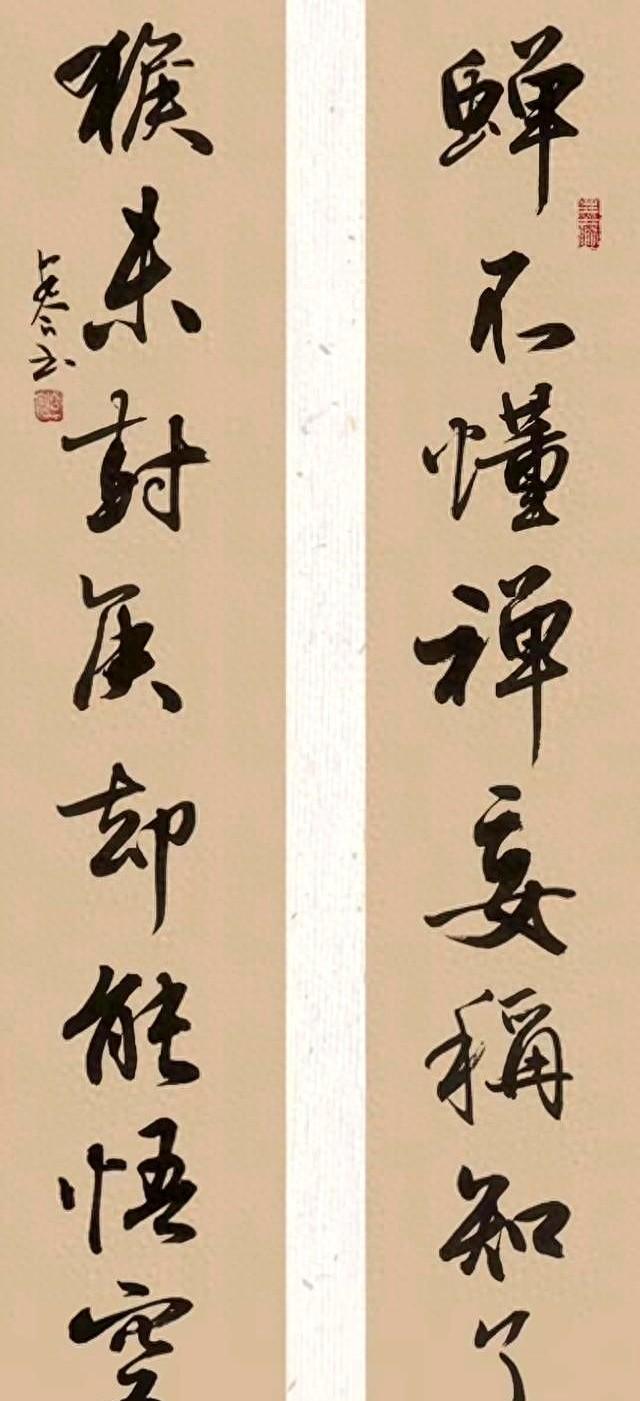 蝉不懂禅妄稱知了
猴未封侯却能悟空